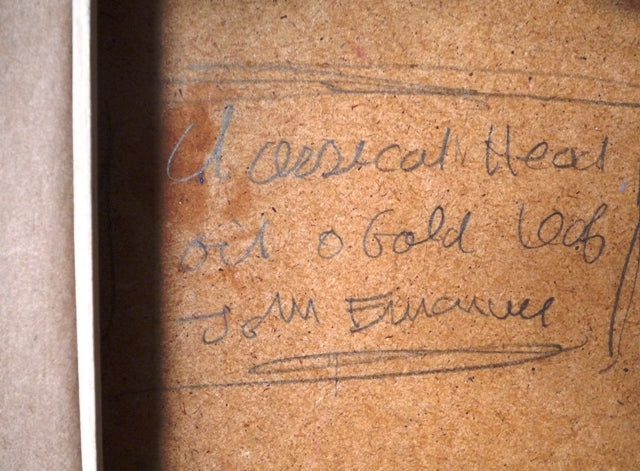 Classical Head
oil & Gold Leaf
John Emanuel